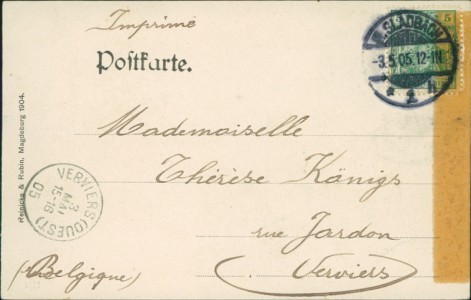 Imprimé
5
M. GLADBACH
-3.5.05.12-1N
* 2 h
Postkarte.
Mademoiselle
Thérèse Königs
rue Jardon
Verviers
(Belgique)
VERVIERS (OUEST)
3
MAI
15-16
05
Reinicke & Rubin, Magdeburg 1904.